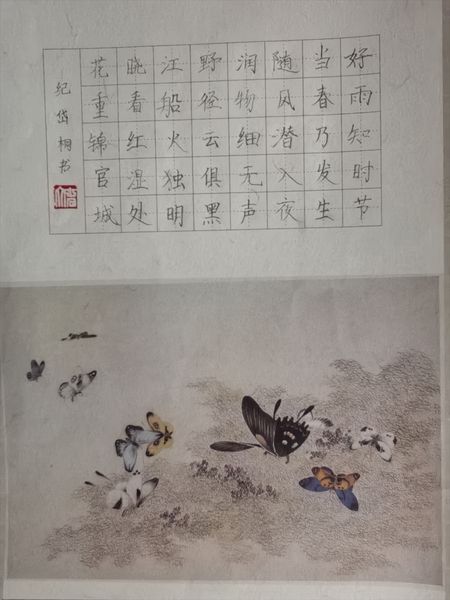 好雨知时节
当春乃发生
随风潜入夜
润物细无声
野径云俱黑
江船火独明
晓看红湿处
花重锦官城
纪岱桐书